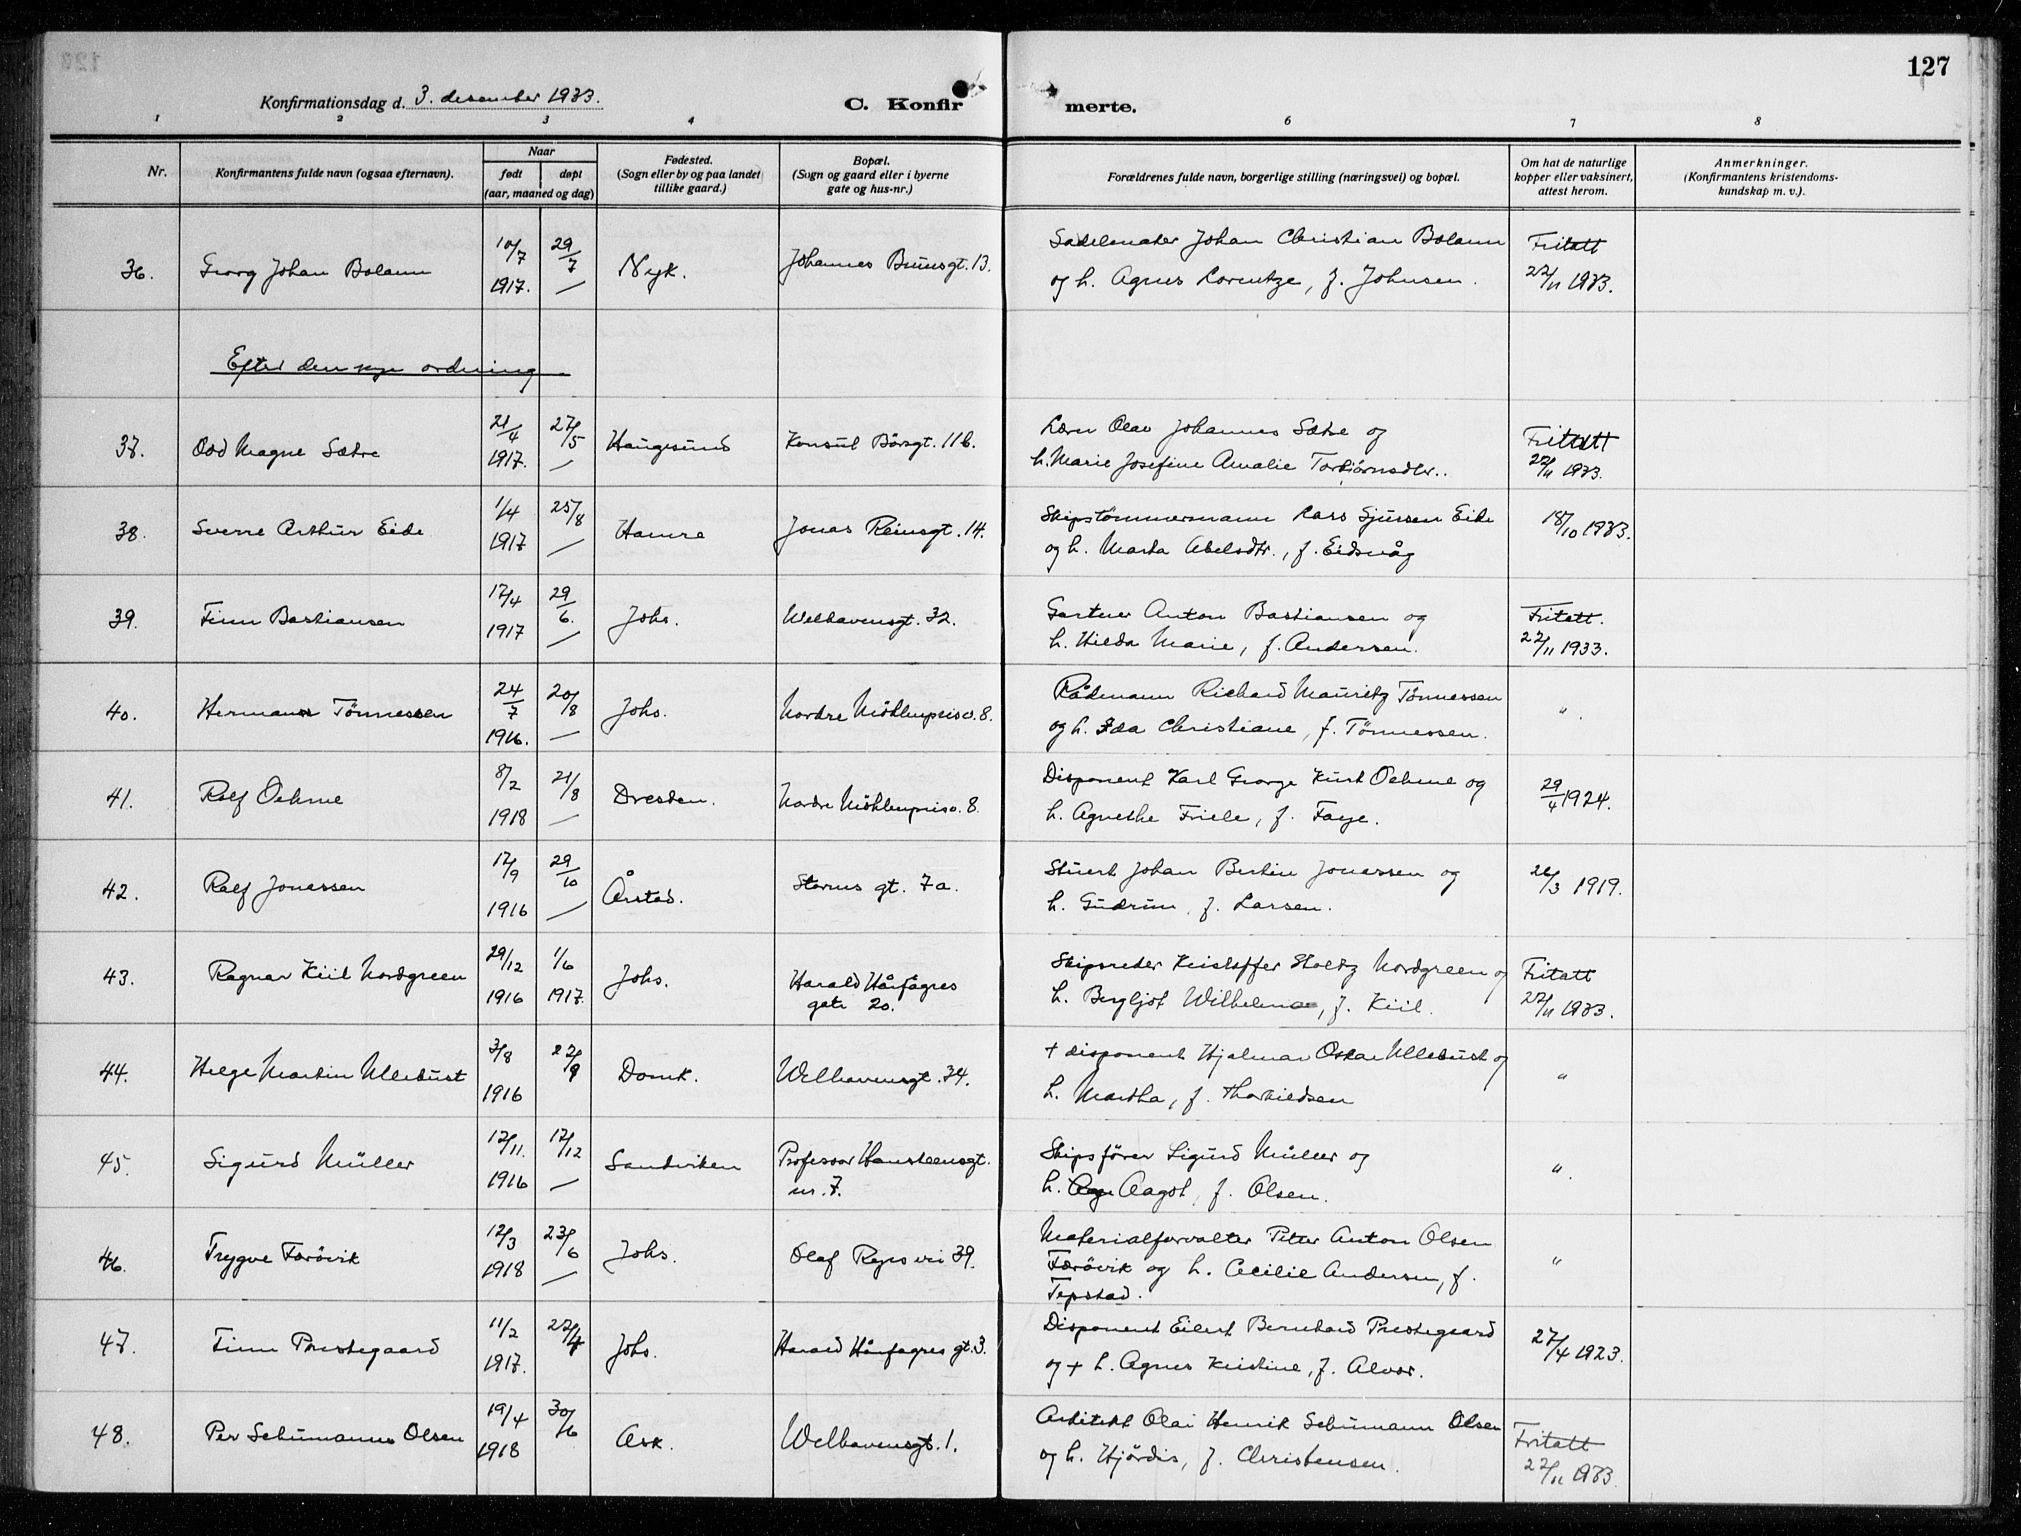 127
Konfirmationsdag d. 3. desember 1933.
C. Konfirmerte.
1 2 3 4 5 6 7 8
Nr.
Konfirmantens fulde navn (ogsaa efternavn).
Naar
født
døpt
(aar, maaned og dag)
Fødested.
(Sogn eller by og paa landet
tillike gaard.)
Bopæl.
(Sogn og gaard eller i byerne
gate og hus-nr.)
Forældrenes fulde navn, borgerlige stilling (næringsvei) og bopæl.
Om hat de naturlige
kopper eller vaksinert,
attest herom.
Anmerkninger.
(Konfirmantens kristendoms-
kundskap m. v.).
36. Georg Johan Bolann 10/7 1917. 29/7 — Nyk. Johannes Brunsgt. 13.
Sadelmaker Johan Christian Bolann
og h. Agnes Lorentze, f. Johnsen.
Fritatt
22/11 1933.
Efter den nye ordning.
37. Odd Magne Sætre 21/4 1917. 27/5 — Haugesund Konsul Børsgt. 11b.
Lærer Olav Johannes Sætre og
h. Marie Josefine Amalie Torbjørnsdtr..
Fritatt
22/11 1933.
38. Sverre Arthur Eide 1/4 1917 25/8 — Hamre Jonas Reinsgt. 14.
Skipstømmermann Lars Sjursen Eide
og h. Marta Abelsdtr., f. Eidsvåg
18/10 1933.
39. Finn Bastiansen 17/4 1917 29/6. — Johs. Welhavensgt. 32.
Gartner Anton Bastiansen og
h. Hilda Marie, f. Andersen.
Fritatt.
22/11 1933.
40. Hermann Tönnessen 24/7 1916. 20/8 — Johs. Nordre Möhlenprisv. 8.
Rådmann Richard Mauritz Tönnessen
og h. Ida Christiane, f. Tönnessen.
"
41. Rolf Oehme 8/2 1918 21/8 — Dresden. Nordre Möhlenprisv. 8.
Disponent Karl George Kurt Oehme og
h. Agnethe Friele, f. Faye.
29/4 1924.
42. Rolf Jonassen 17/9 1916 29/10 — Årstad. Storms gt. 7a.
Stuert Johan Bertin Jonassen og
h. Gudrun, f. Larsen.
26/3 1919.
43. Ragnar Kiil Nordgreen 29/12 1916 1/6 1917. Johs. Harald Hårfagres
gate 20.
Skipsreder Kristoffer Stoltz Nordgreen og
h. Bergljot Wilhelma, f. Kiil.
Fritatt
22/11 1933.
44. Helge Martin Ulledust 3/8 1916 22/9 Domk. Welhavensgt. 34.
+ disponent Hjalmar Oskar Ulledust og
h. Martha, f. Thorkildsen
"
45. Sigurd Müller 12/11. 1916 17/12 — Sandviken Professor Hansteensgt.
nr. 7.
Skipsfører Sigurd Müller og
h. Aagot, f. Olsen.
"
46. Trygve Færövik 12/3 1918 23/6 — Johs. Olaf Ryes vei 39.
Materialforvalter Petter Anton Olsen
Færövik og h. Cecilie Andersen, f.
Tepstad.
"
47. Finn Prestegaard 11/2 1917. 22/4 Johs. Harald Hårfagres gt. 3.
Disponent Eilert Bernhard Prestegaard
og + h. Agnes Kristine, f. Alver.
27/4 1923.
48. Per Schumann Olsen 19/4 1918 30/6 Ask. Welhavensgt. 1.
Arkitekt Olai Henrik Schumann Olsen
og h. Hjørdis, f. Christensen.
Fritatt
22/11 1933